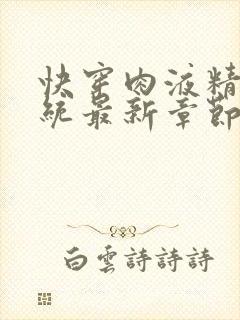 快穿肉液精
统最新章節
白雲詩詩詩